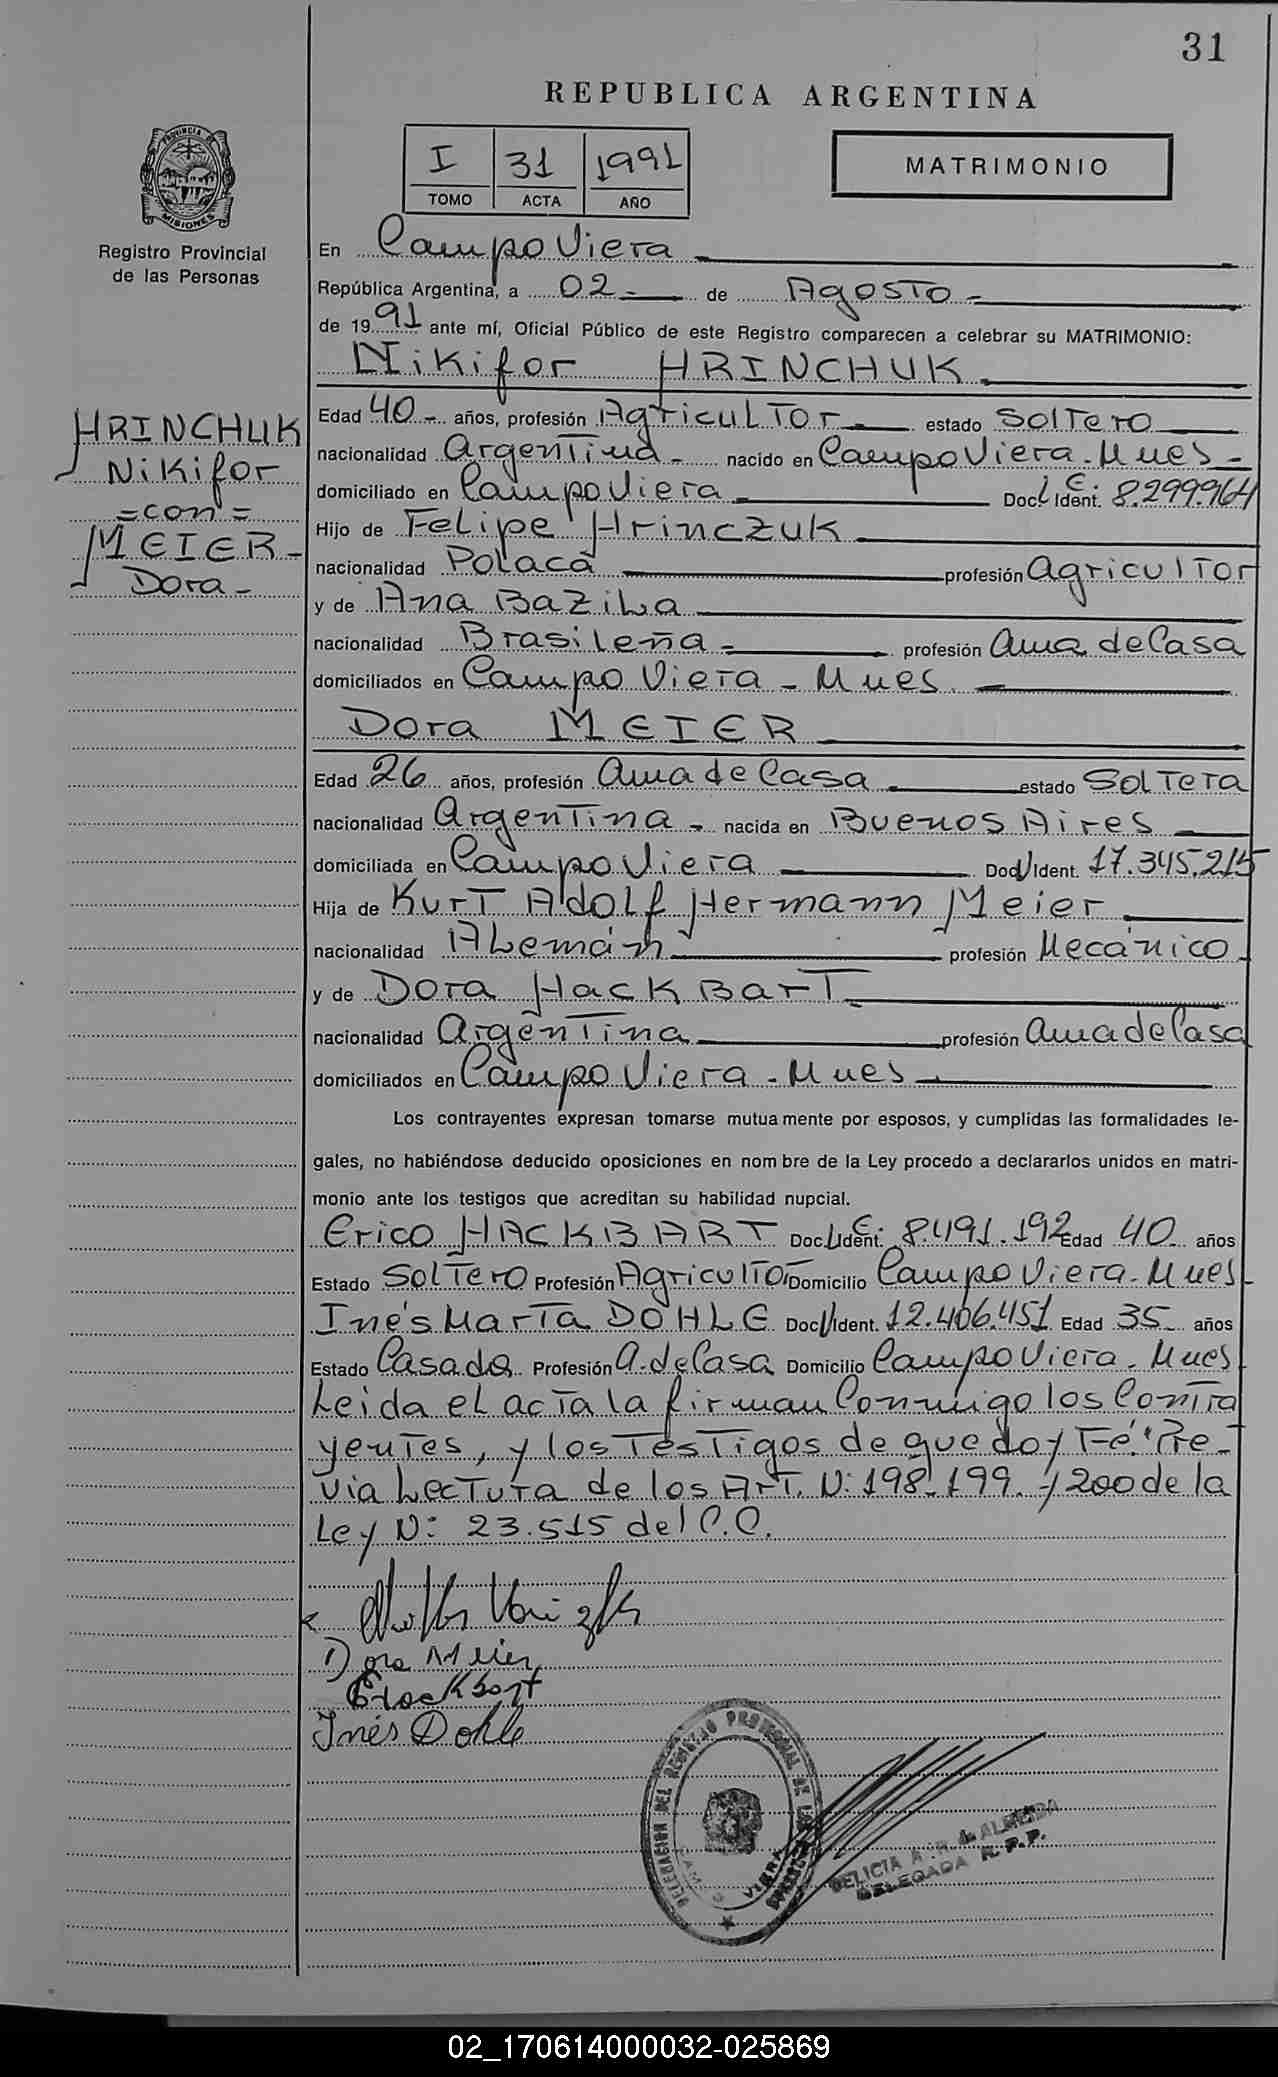 31
REPUBLICA ARGENTINA
PROVINCIA DE MISIONES
Registro Provincial
de las Personas
I 31 1991
TOMO ACTA AÑO
MATRIMONIO
En Campo Viera
República Argentina, a 02 de Agosto
de 1991 ante mí, Oficial Público de este Registro comparecen a celebrar su MATRIMONIO:
Nikifor HRINCHUK
HRINCHUK
Nikifor
=con=
MEIER
Dora
Edad 40 años, profesión Agricultor estado Soltero
nacionalidad Argentina nacido en Campo Viera - Mnes
domiciliado en Campo Viera Doc. L.E. Ident. 8.299.964
Hijo de Felipe Hrinczuk
nacionalidad Polaca profesión Agricultor
y de Ana Bazila
nacionalidad Brasileña profesión Ama de Casa
domiciliados en Campo Viera - Mnes
Dora MEIER
Edad 26 años, profesión Ama de Casa estado Soltera
nacionalidad Argentina nacida en Buenos Aires
domiciliada en Campo Viera Doc. Ident. 17.345.215
Hija de Kurt Adolf Hermann Meier
nacionalidad Alemán profesión Mecánico
y de Dora Hackbart
nacionalidad Argentina profesión Ama de Casa
domiciliados en Campo Viera - Mnes
Los contrayentes expresan tomarse mutuamente por esposos, y cumplidas las formalidades le-
gales, no habiéndose deducido oposiciones en nombre de la Ley procedo a declararlos unidos en matri-
monio ante los testigos que acreditan su habilidad nupcial.
Erico HACKBART Doc. L.E. Ident. 8.491.192 Edad 40 años
Estado Soltero Profesión Agricultor Domicilio Campo Viera - Mnes
Inés Marta DOHLE Doc. Ident. 12.406.451 Edad 35 años
Estado Casada Profesión A. de Casa Domicilio Campo Viera - Mnes
Leida el acta la firman Conmigo los Contra
yentes, y los Testigos de que doy Fé. Pre-
via Lectura de los Art. N: 198-199. y 200 de la
Ley N: 23.515 del C.C.
Dora Meier
EHackbart
Inés Dohle
DELEGACION DEL REGISTRO PROVINCIAL DE LAS PERSONAS
CAMPO VIERA
DELICIA A. R. de ALMEIDA
DELEGADA R.P.P.
02_170614000032-025869